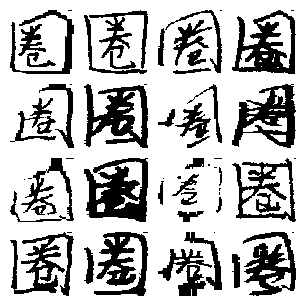 圈圈圈圈
圈圈圈圈
圈圈圈圈
圈圈圈圈